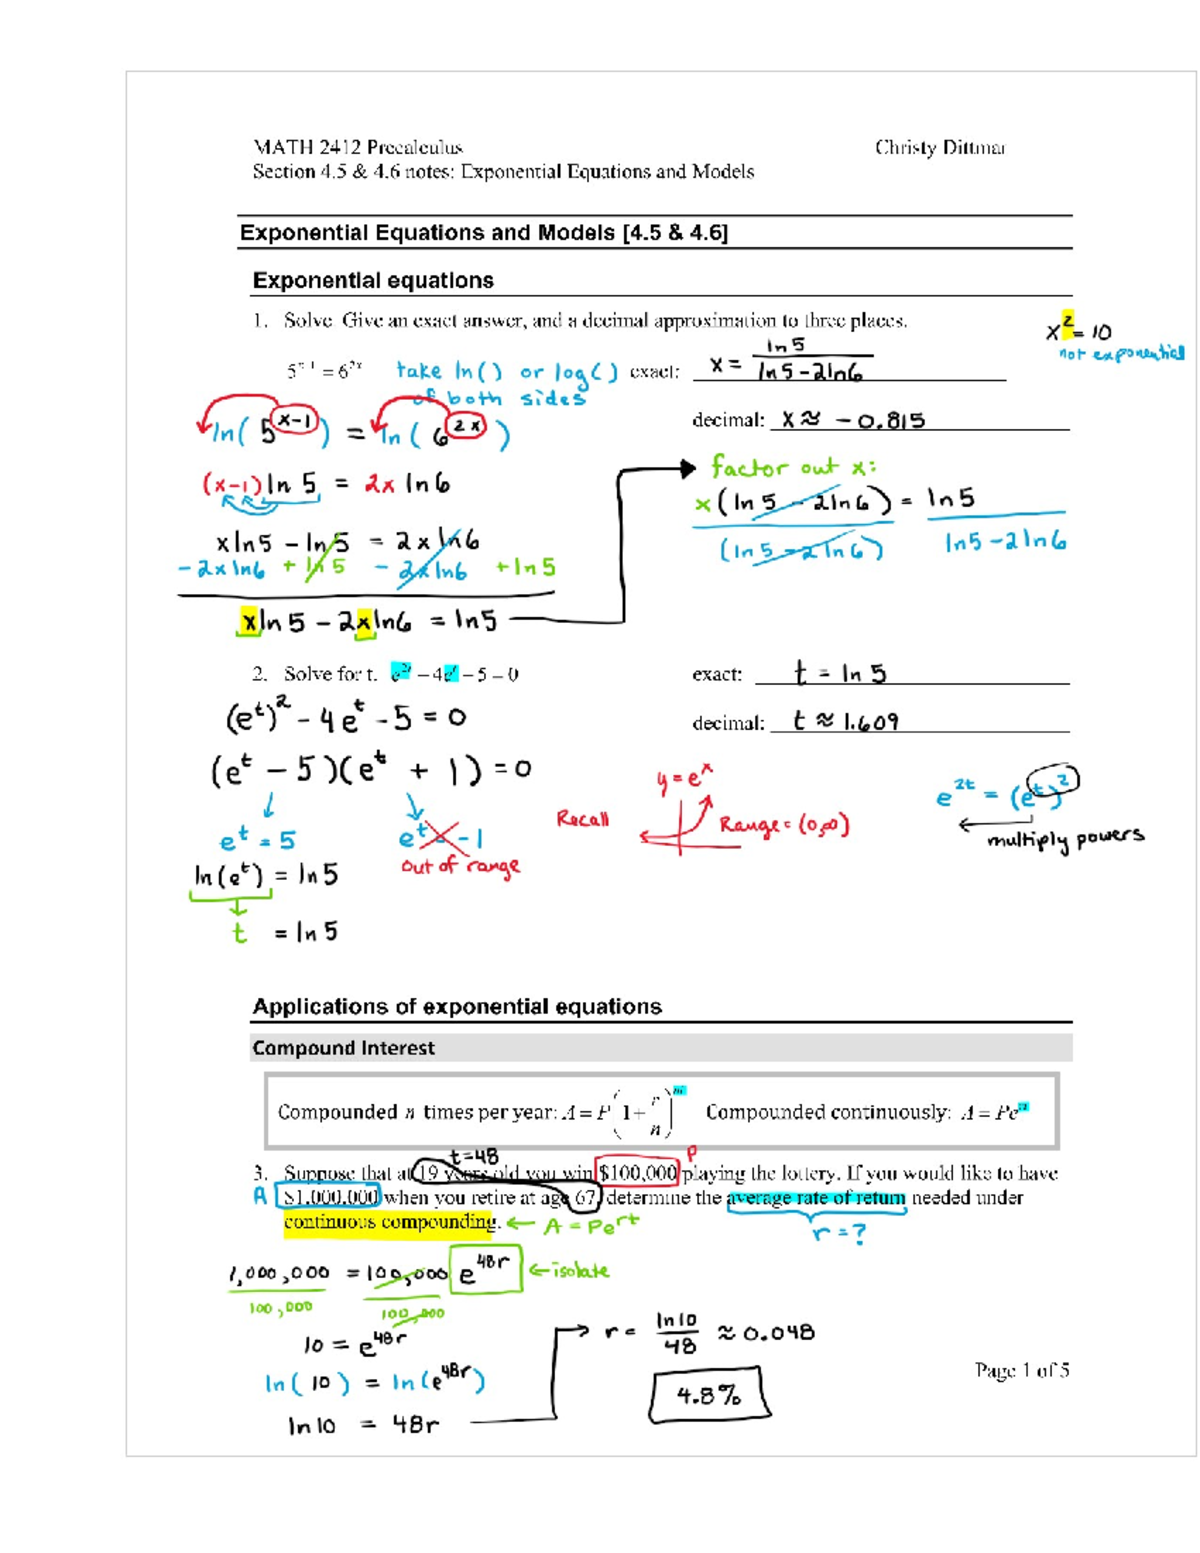 MATH 2412 Precalculus Christy Dittmar
Section 4.5 & 4.6 notes: Exponential Equations and Models
Exponential Equations and Models [4.5 & 4.6]
Exponential equations
1. Solve Give an exact answer, and a decimal approximation to three places.
x² = 10
not exponential
5^(x-1) = 6^(2x) take ln() or log() of both sides
exact: x = ln5 / (ln5 - 2ln6)
decimal: x ≈ -0.815
ln(5^(x-1)) = ln(6^(2x))
(x-1)ln 5 = 2x ln6
xln5 - ln5 = 2xln6
- 2xln6 + ln5 - 2xln6 + ln5
xln5 - 2xln6 = ln5
factor out x:
x(ln5 - 2ln6) = ln5
(ln5 - 2ln6) ln5 - 2ln6
2. Solve for t. e^(2t) - 4e^t - 5 = 0
exact: t = ln 5
decimal: t ≈ 1.609
(e^t)² - 4e^t - 5 = 0
(e^t - 5)(e^t + 1) = 0
e^t = 5 e^t = -1
out of range
ln(e^t) = ln5
t = ln5
Recall
y = e^x
Range = (0,∞)
e^(2t) = (e^t)²
multiply powers
Applications of exponential equations
Compound Interest
Compounded n times per year: A = P(1 + r/n)^(nt) Compounded continuously: A = Pe^(rt)
t=48 P
3. Suppose that at 19 years old you win $100,000 playing the lottery. If you would like to have
A $1,000,000 when you retire at age 67, determine the average rate of return needed under
continuous compounding. ← A = Pe^(rt) r = ?
1,000,000 = 100,000 e^(48r) ← isolate
100,000 100,000
10 = e^(48r)
ln(10) = ln(e^(48r))
ln10 = 48r
r = ln10 / 48 ≈ 0.048
4.8%
Page 1 of 5